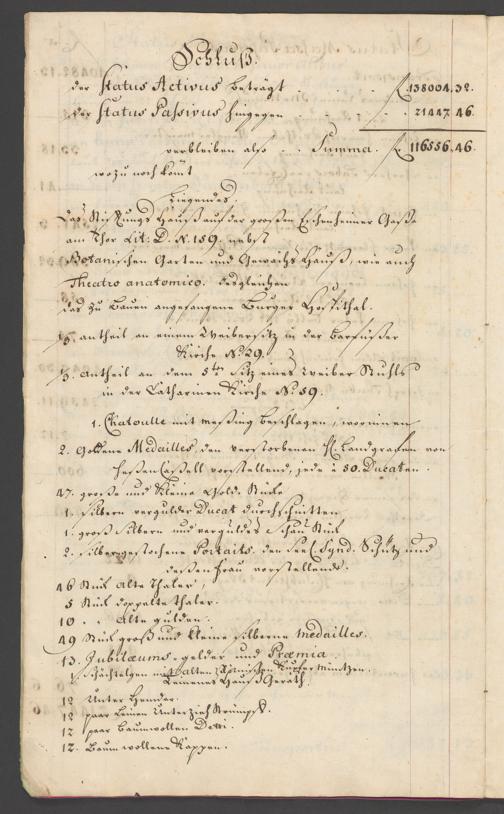 Schluß.
der Status Activus beträgt . . . f. 138004. 32.
der Status Passivus hingegen . . . 21447. 46.
verbleiben also . . Summa. f. 116556. 46.
wozu noch kömt
Liegendes.
Das Stiftungs Hauß auf der großen Eschenheimer Gasse
am Thor Lit: D. N. 159. nebst
Botanischen Garten und Gewächs Hauß, wie auch
Theatro anatomico. desgleichen
das zu Bauen angefangene Burger Hospithal.
antheil an einem Weibersitz in der Barfüsser
Kirche No. 29.
antheil an dem 5ten Sitz eines Weiber Stuhls
in der Catharinen Kirche No. 59.
1. Chatoulle mit messing beschlagen, worinnen
2. Goldene Medailles, den verstorbenen H. Landgrafen von
Hessen Cassell vorstellend, jede à 50. Ducaten.
47. große und kleine Gold. Stücke
1. silbern vergulder Ducat durchschnitten
1. groß silbern und verguldes Schau Stück
2. silbergestochene Portaits. den seel. Synd. Schütz und
dessen Frau vorstellend.
46 Stück alte Thaler,
5 Stück doppelte thaler.
10 . . Alte gulden.
49 Stück groß und kleine silberne medailles.
13. Jubilæums-gelder und Præmia.
1. Schächtelgen mit alten Römischen Kupfer müntzen.
Leinenes Hauß Geräth.
12 Unter Hemder.
12 paar Leinen Unterzieh Strümpf.
12 paar baumwollen
12. Baumwollene Kappen.